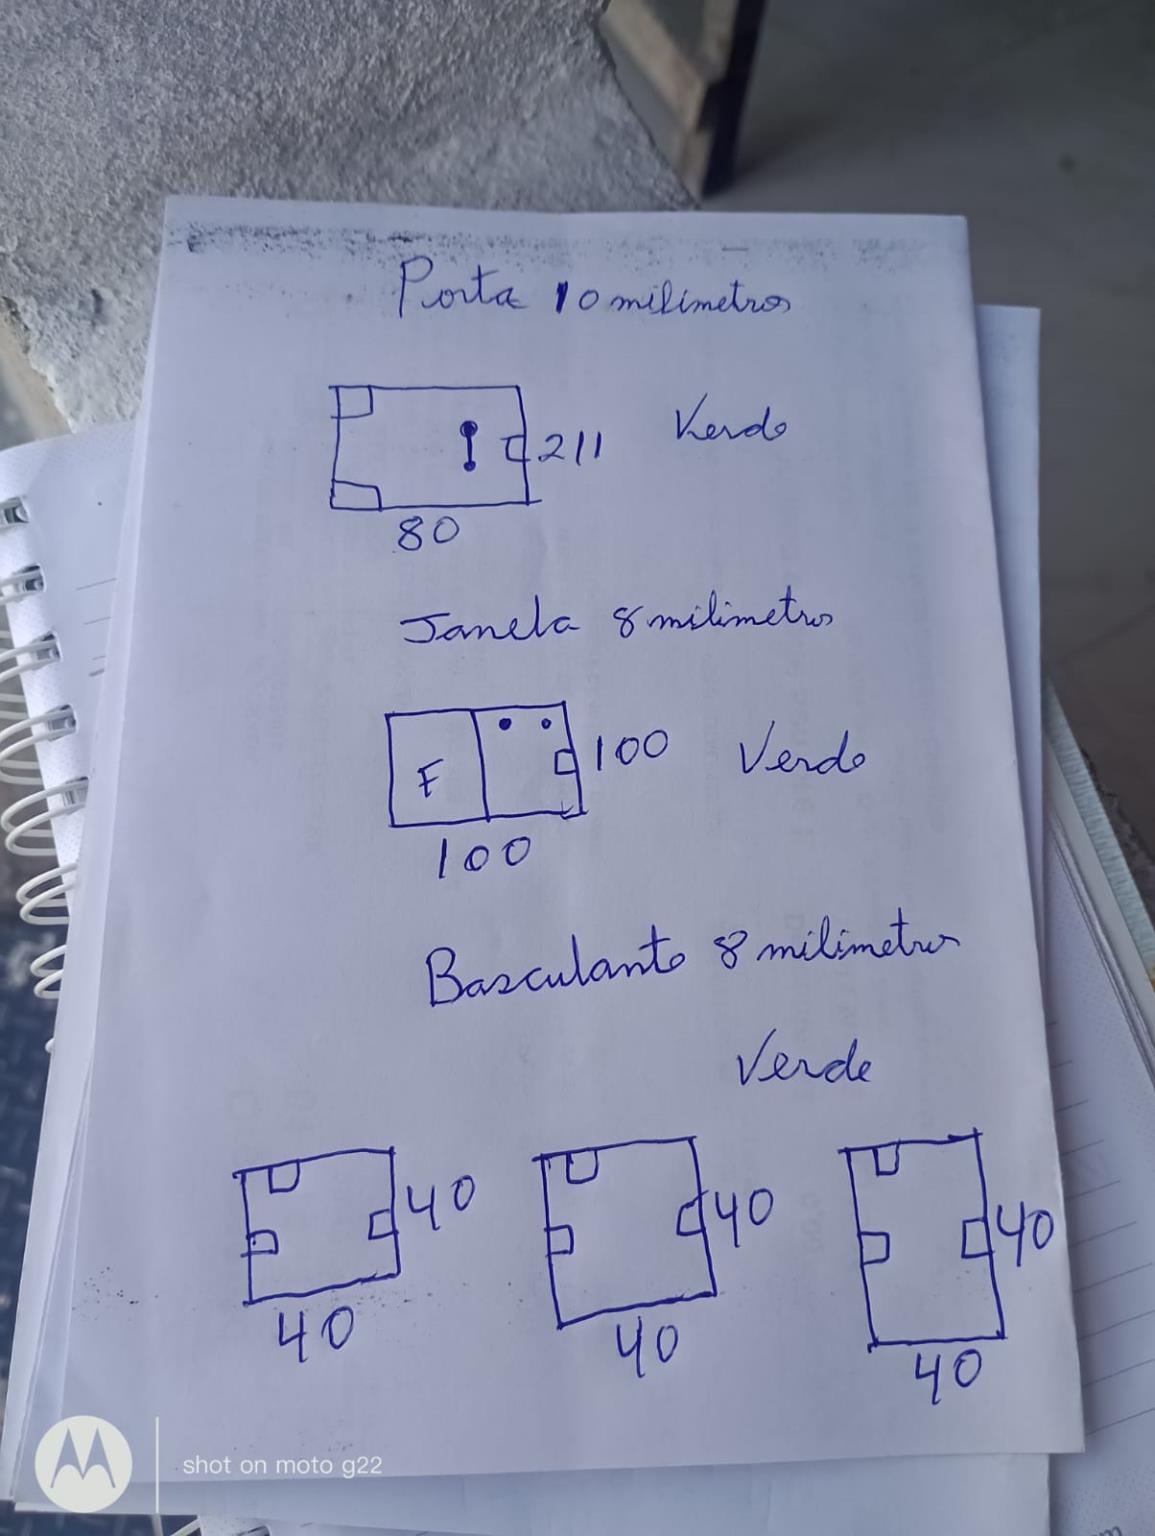 Porta 10 milimetros
211
Verde
80
Janela 8 milimetros
F
100
Verde
100
Basculante 8 milimetros
Verde
40
40
40
40
40
40
shot on moto g22